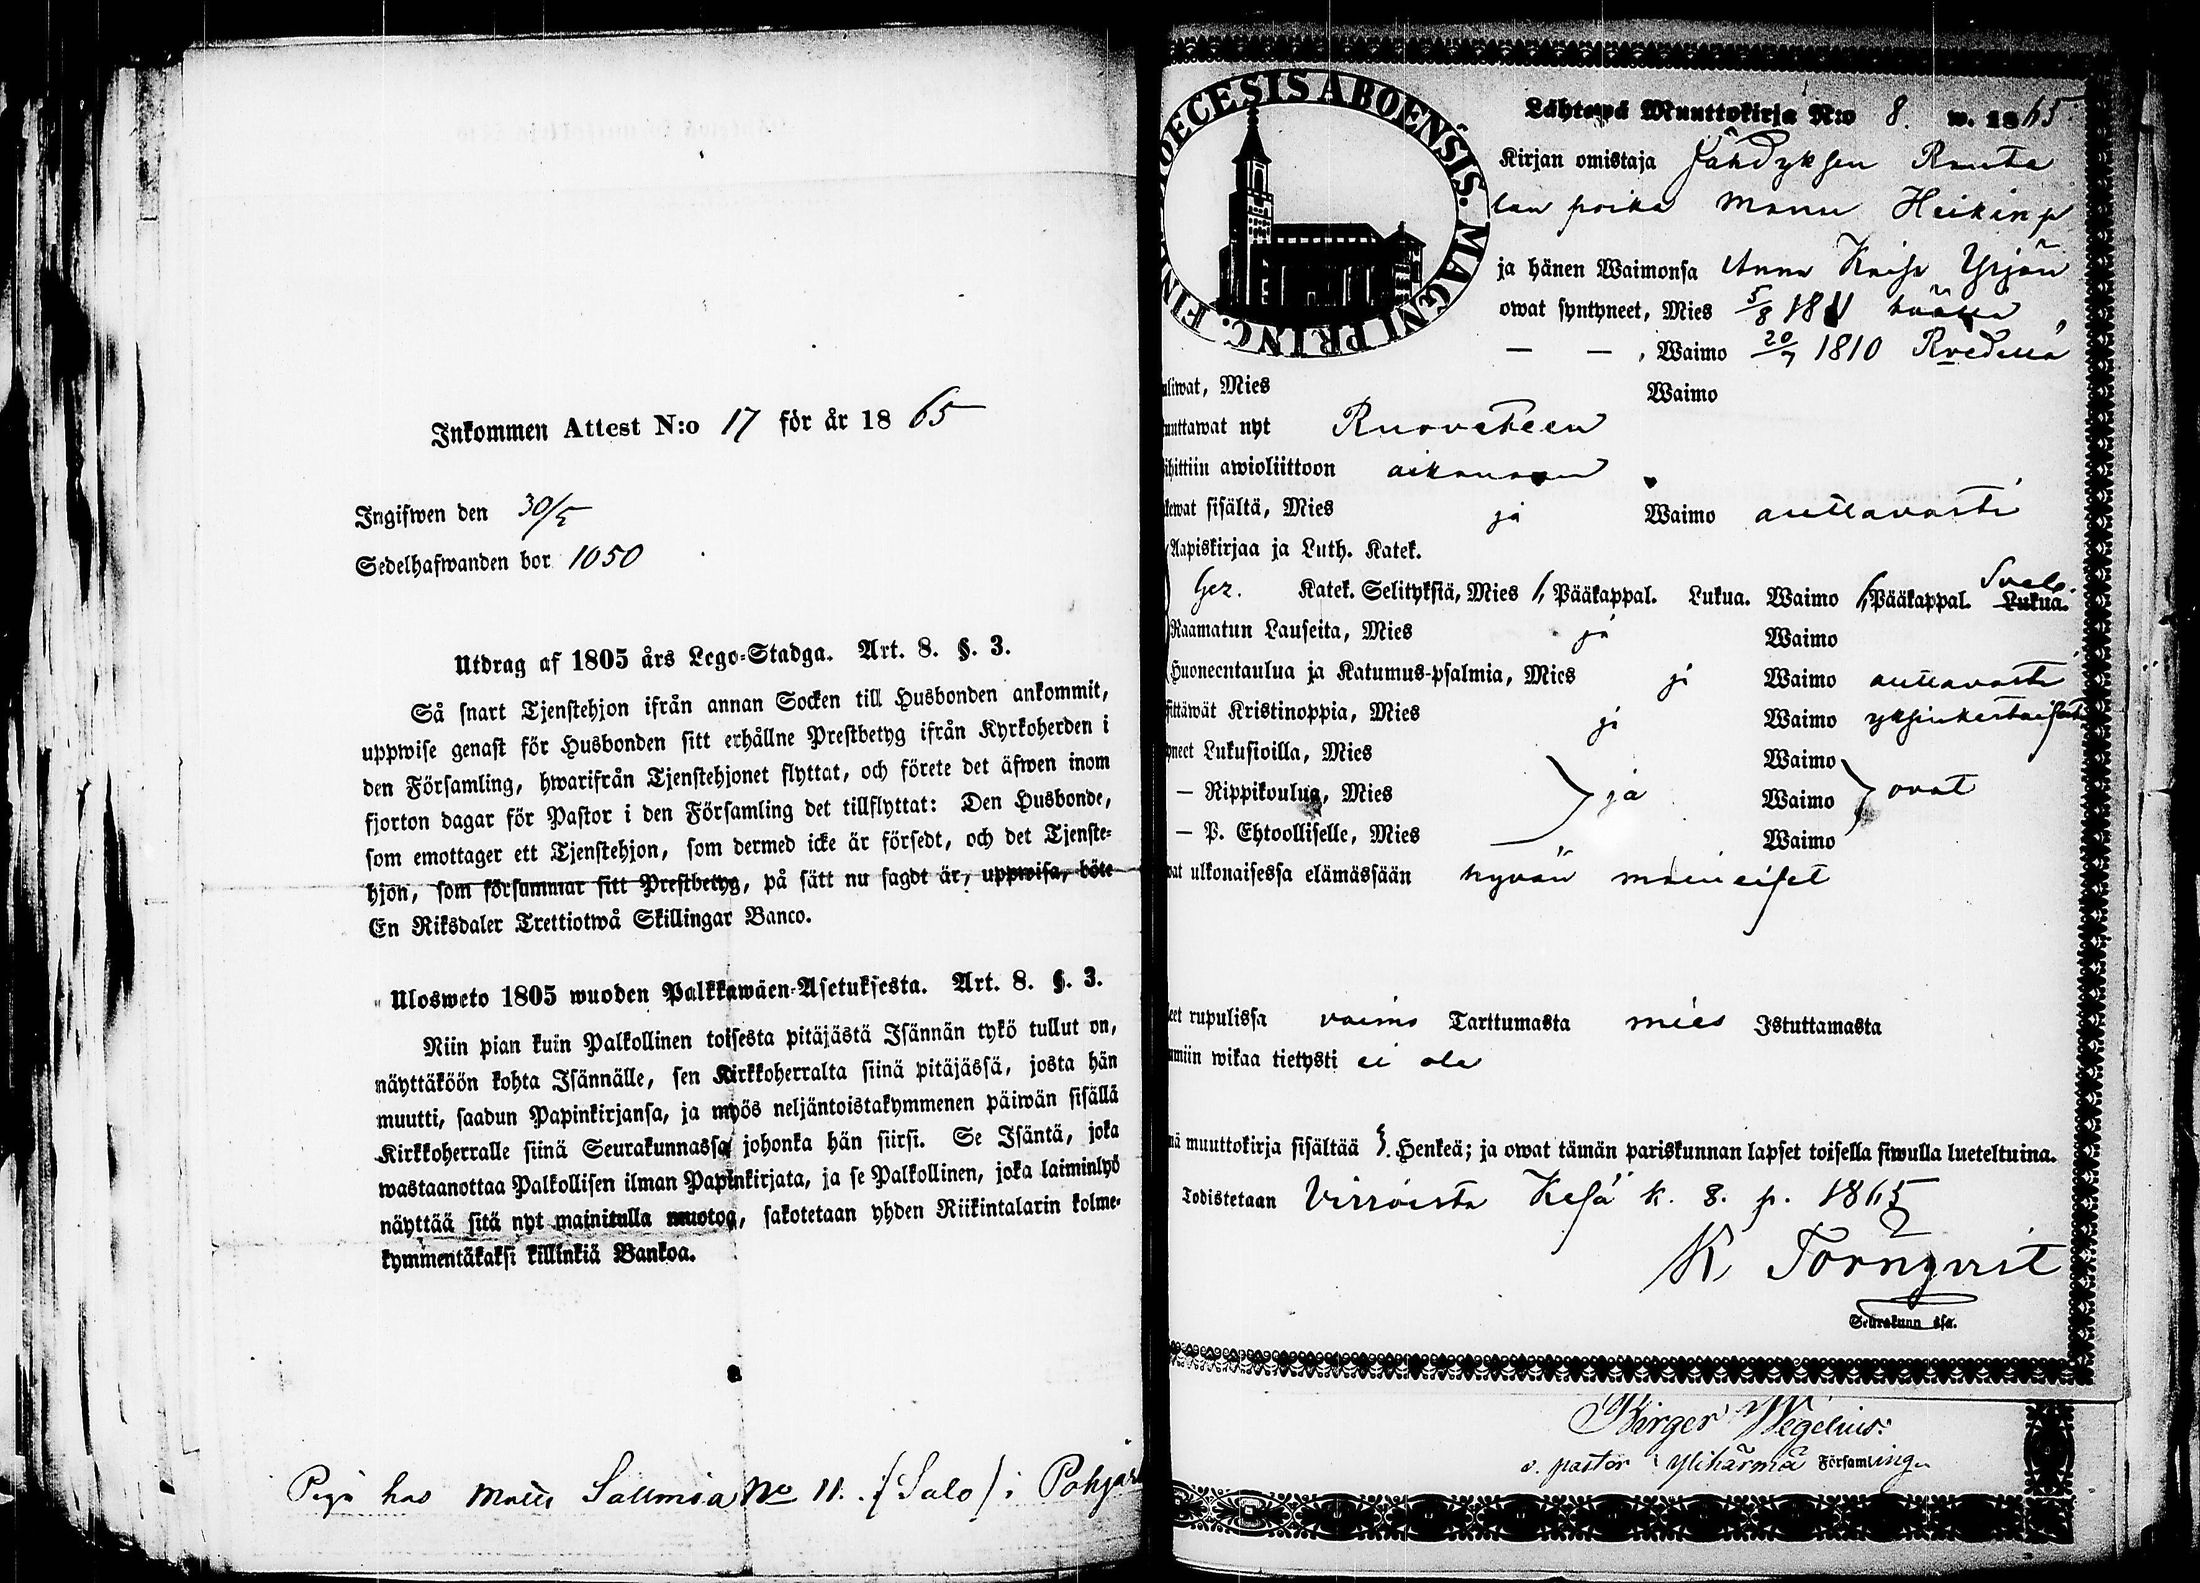 Inkommen Attest N:o 17 för år 1865
Ingifwen den 30/5
Sedelhafwanden bor 1050
Utdrag af 1805 års Lego-Stadga. Art. 8. §. 3.
Så snart Tjenstehjon ifrån annan Socken till Husbonden ankommit,
uppwise genast för Husbonden sitt erhållne Prestbetyg ifrån Kyrkoherden i
den Församling, hwarifrån Tjenstehjonet flyttat, och förete det äfwen inom
fjorton dagar för Pastor i den Församling det tillflyttat: Den Husbonde,
som emottager ett Tjenstehjon, som dermed icke är försedt, och det Tjenste-
hjon, som försummar sitt Prestbetyg, på sätt nu sagdt är, uppwisa, böte
En Riksdaler Trettiotwå Skillingar Banco.
Ulosweto 1805 wuoden Palkkawäen-Asetuksesta. Art. 8. §. 3.
Niin pian kuin Palkollinen toisesta pitäjästä Isännän tykö tullut on,
näyttäköön kohta Isännälle, sen Kirkkoherralta siinä pitäjässä, josta hän
muutti, saadun Papinkirjansa, ja myös neljäntoistakymmenen päiwän sisällä
Kirkkoherralle siinä Seurakunnassa johonka hän siirsi. Se Isäntä, joka
wastaanottaa Palkollisen ilman Papinkirjata, ja se Palkollinen, joka laiminlyö
näyttää sitä nyt mainitulla muotoa, sakotetaan yhden Riikintalarin kolme-
kymmentäkaksi killinkiä Bankoa.
Piga hos Matts Sallmia No 11. (Salo) i
DIOECESIS ABOENSIS. MAGNI PRINC. FIN
Lähtewä Muuttokirja N:o 8. w. 1865.
Kirjan omistaja Jähdyksen Rauta
lan poika Manu Heikinp
ja hänen Waimonsa Anna Kaisa Yrjän
owat syntyneet, Mies 5/8 1811 täällä
— — , Waimo 20/7 1810 Rvedellä
Mies Waimo
nyt Ruoveteen
awioliittoon aikanaan
sisältä, Mies ja Waimo auttavasti
Aapiskirjaa ja Luth. Katek.
Katek. Selityksiä, Mies Pääkappal. Lukua. Waimo Pääkappal. Lukua.
Raamatun Lauseita, Mies ja Waimo
Huoneentaulua ja Katumus-psalmia, Mies ja Waimo auttavasti
Kristinoppia, Mies ja Waimo yksinkertaisesti
Lukusioilla, Mies Waimo
— Rippikoulua, Mies ja Waimo ovat
— P. Ehtoolliselle, Mies Waimo
ulkonaisessa elämässään hyvän maineiset
rupulissa vaimo Tarttumasta mies Istuttamasta
wikaa tietysti ei ole
muuttokirja sisältää Henkeä; ja owat tämän pariskunnan lapset toisella siwulla lueteltuina.
Todistetaan Virroista Kesä k. 8. p. 1865
K Törnqvist
Seurakunn
Birger Wegelius.
v. pastor i Ylihärmä Församling.